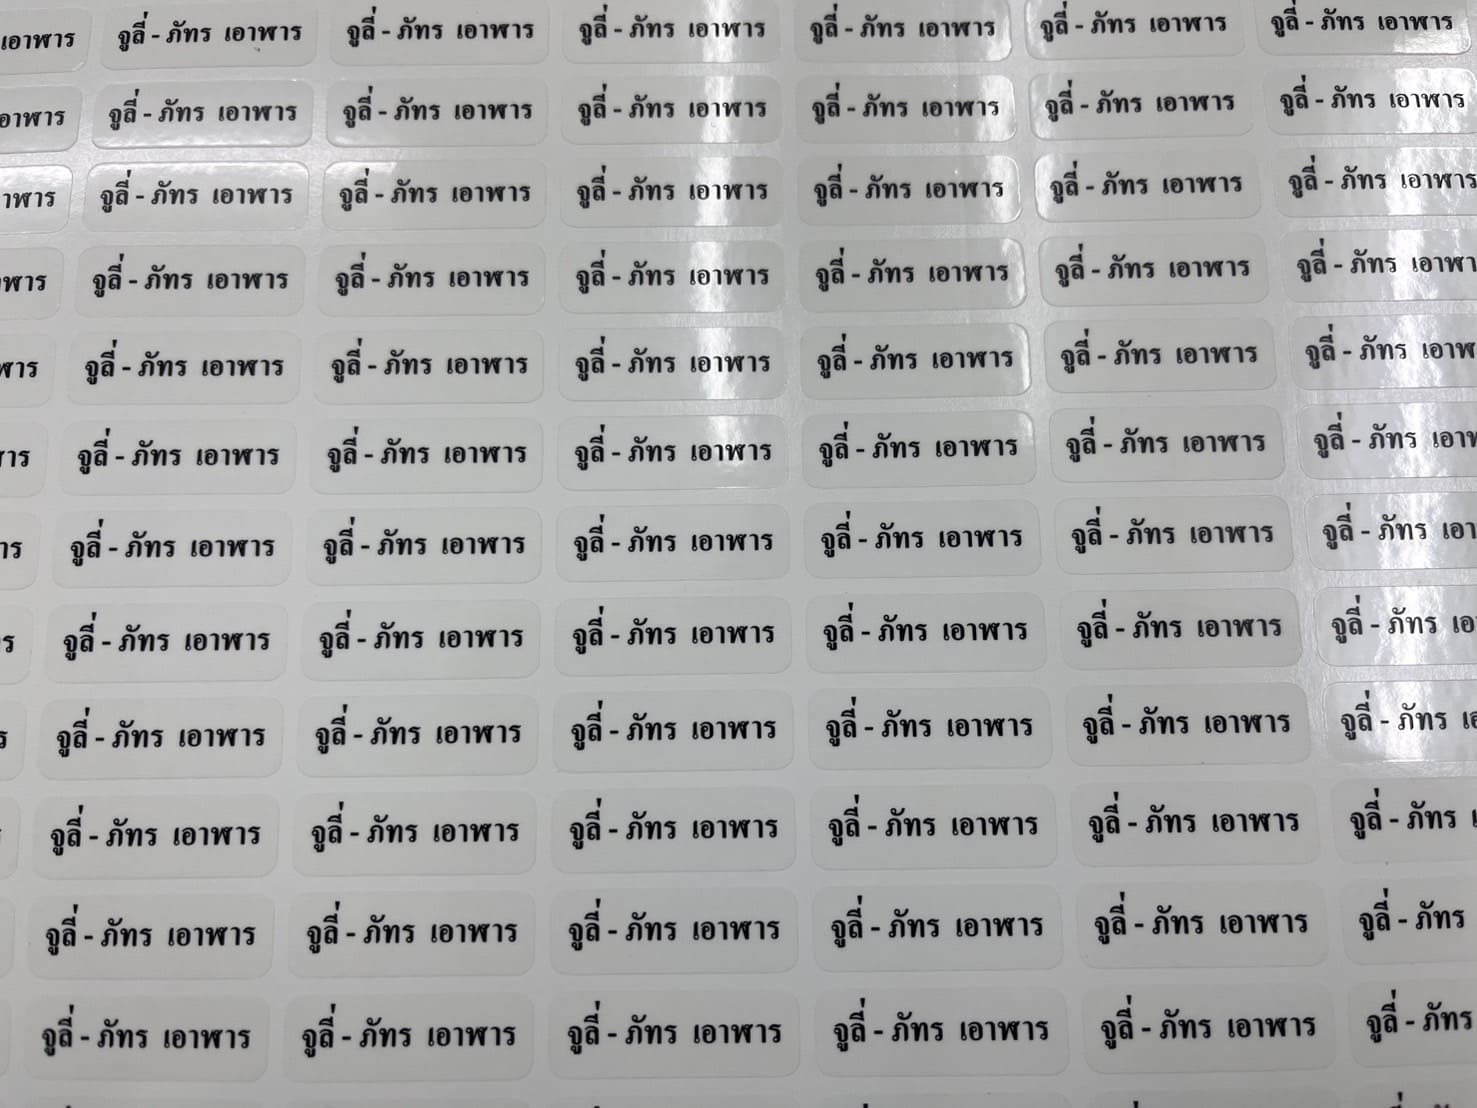 เอาฬาร จูลี่ - ภัทร เอาฬาร จูลี่ - ภัทร เอาฬาร จูลี่ - ภัทร เอาฬาร จูลี่ - ภัทร เอาฬาร จูลี่ - ภัทร เอาฬาร จูลี่ - ภัทร เอาฬาร
อาฬาร จูลี่ - ภัทร เอาฬาร จูลี่ - ภัทร เอาฬาร จูลี่ - ภัทร เอาฬาร จูลี่ - ภัทร เอาฬาร จูลี่ - ภัทร เอาฬาร จูลี่ - ภัทร เอาฬาร
าฬาร จูลี่ - ภัทร เอาฬาร จูลี่ - ภัทร เอาฬาร จูลี่ - ภัทร เอาฬาร จูลี่ - ภัทร เอาฬาร จูลี่ - ภัทร เอาฬาร จูลี่ - ภัทร เอาฬาร
ฬาร จูลี่ - ภัทร เอาฬาร จูลี่ - ภัทร เอาฬาร จูลี่ - ภัทร เอาฬาร จูลี่ - ภัทร เอาฬาร จูลี่ - ภัทร เอาฬาร จูลี่ - ภัทร เอาฬา
ฬาร จูลี่ - ภัทร เอาฬาร จูลี่ - ภัทร เอาฬาร จูลี่ - ภัทร เอาฬาร จูลี่ - ภัทร เอาฬาร จูลี่ - ภัทร เอาฬาร จูลี่ - ภัทร เอาฬ
าร จูลี่ - ภัทร เอาฬาร จูลี่ - ภัทร เอาฬาร จูลี่ - ภัทร เอาฬาร จูลี่ - ภัทร เอาฬาร จูลี่ - ภัทร เอาฬาร จูลี่ - ภัทร เอา
าร จูลี่ - ภัทร เอาฬาร จูลี่ - ภัทร เอาฬาร จูลี่ - ภัทร เอาฬาร จูลี่ - ภัทร เอาฬาร จูลี่ - ภัทร เอาฬาร จูลี่ - ภัทร เอา
ร จูลี่ - ภัทร เอาฬาร จูลี่ - ภัทร เอาฬาร จูลี่ - ภัทร เอาฬาร จูลี่ - ภัทร เอาฬาร จูลี่ - ภัทร เอาฬาร จูลี่ - ภัทร เอ
ร จูลี่ - ภัทร เอาฬาร จูลี่ - ภัทร เอาฬาร จูลี่ - ภัทร เอาฬาร จูลี่ - ภัทร เอาฬาร จูลี่ - ภัทร เอาฬาร จูลี่ - ภัทร เอ
จูลี่ - ภัทร เอาฬาร จูลี่ - ภัทร เอาฬาร จูลี่ - ภัทร เอาฬาร จูลี่ - ภัทร เอาฬาร จูลี่ - ภัทร เอาฬาร จูลี่ - ภัทร เ
จูลี่ - ภัทร เอาฬาร จูลี่ - ภัทร เอาฬาร จูลี่ - ภัทร เอาฬาร จูลี่ - ภัทร เอาฬาร จูลี่ - ภัทร เอาฬาร จูลี่ - ภัทร
จูลี่ - ภัทร เอาฬาร จูลี่ - ภัทร เอาฬาร จูลี่ - ภัทร เอาฬาร จูลี่ - ภัทร เอาฬาร จูลี่ - ภัทร เอาฬาร จูลี่ - ภัทร